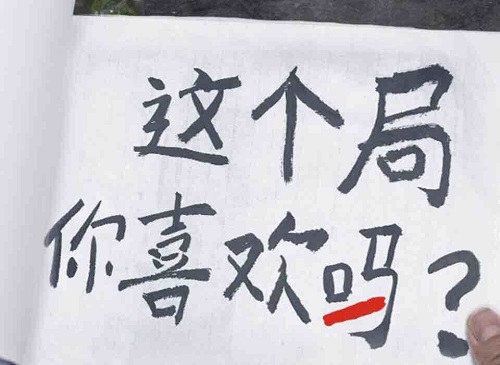 这个局
你喜欢吗?